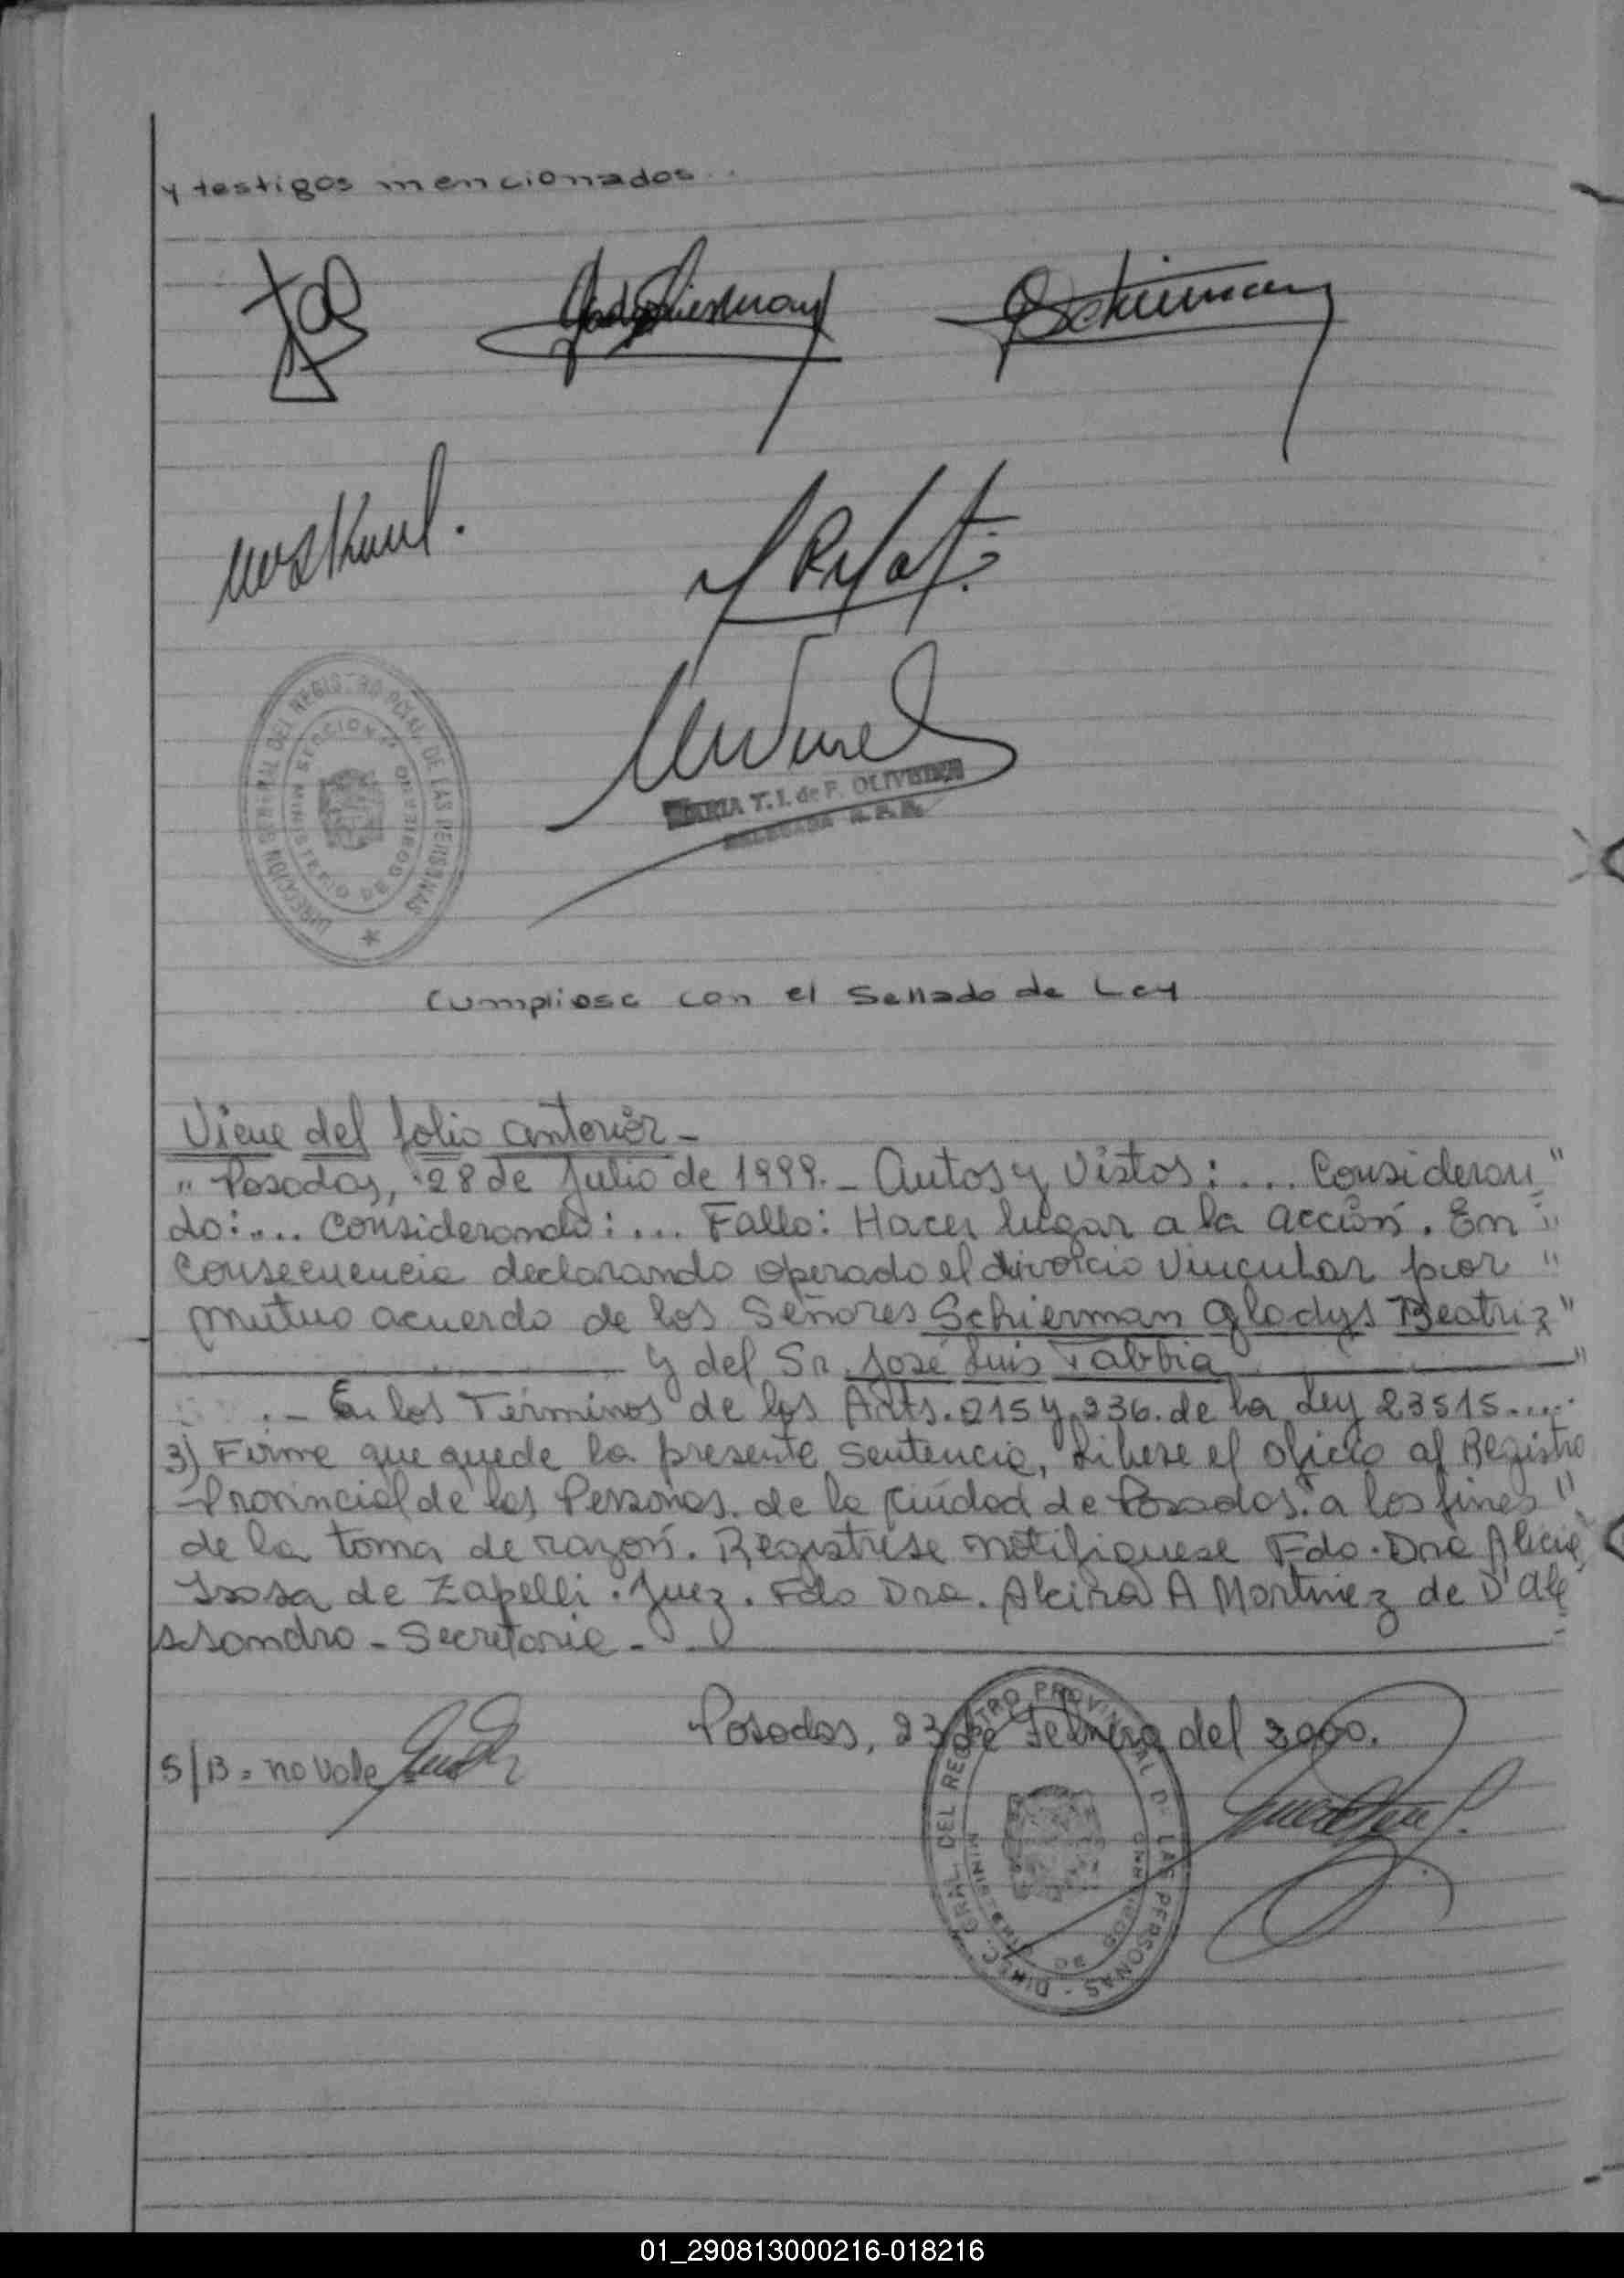 y testigos mencionados..
DIRECCION GENERAL DEL REGISTRO PCIAL. DE LAS PERSONAS
MINISTERIO DE GOBIERNO
SECCION
MARIA T. I. de F. OLIVEIRA
DELEGADA R. P. P.
Cumpliose con el Sellado de Ley
Viene del folio anterior -
" Posadas, 28 de Julio de 1999. - Autos y Vistos: ... Consideran "
do: .... Considerando: ... Fallo: Hacer lugar a la acción. En "
Consecuencia declarando operado el divorcio Vincular por "
mutuo acuerdo de los Señores Schierman Gladys Beatriz "
y del Sr. José Luis Tabbia "
. - En los Términos de los Arts. 215 y 236. de la Ley 23515.....
3) Firme que quede la presente Sentencia, libese el oficio al Registro
Provincial de las Personas. de la Ciudad de Posadas. a los fines "
de la toma de razón. Registrese notifiquese Fdo. Dra Alicia
Isosa de Zapelli. Juez. Fdo Dra. Alcira A Martinez de D'Ale
ssandro - Secretaria -
Posadas, 23 de Febrero del 2000.
S/B = no vale
DIREC. GRAL. DEL REGISTRO PROVINCIAL DE LAS PERSONAS
01_290813000216-018216